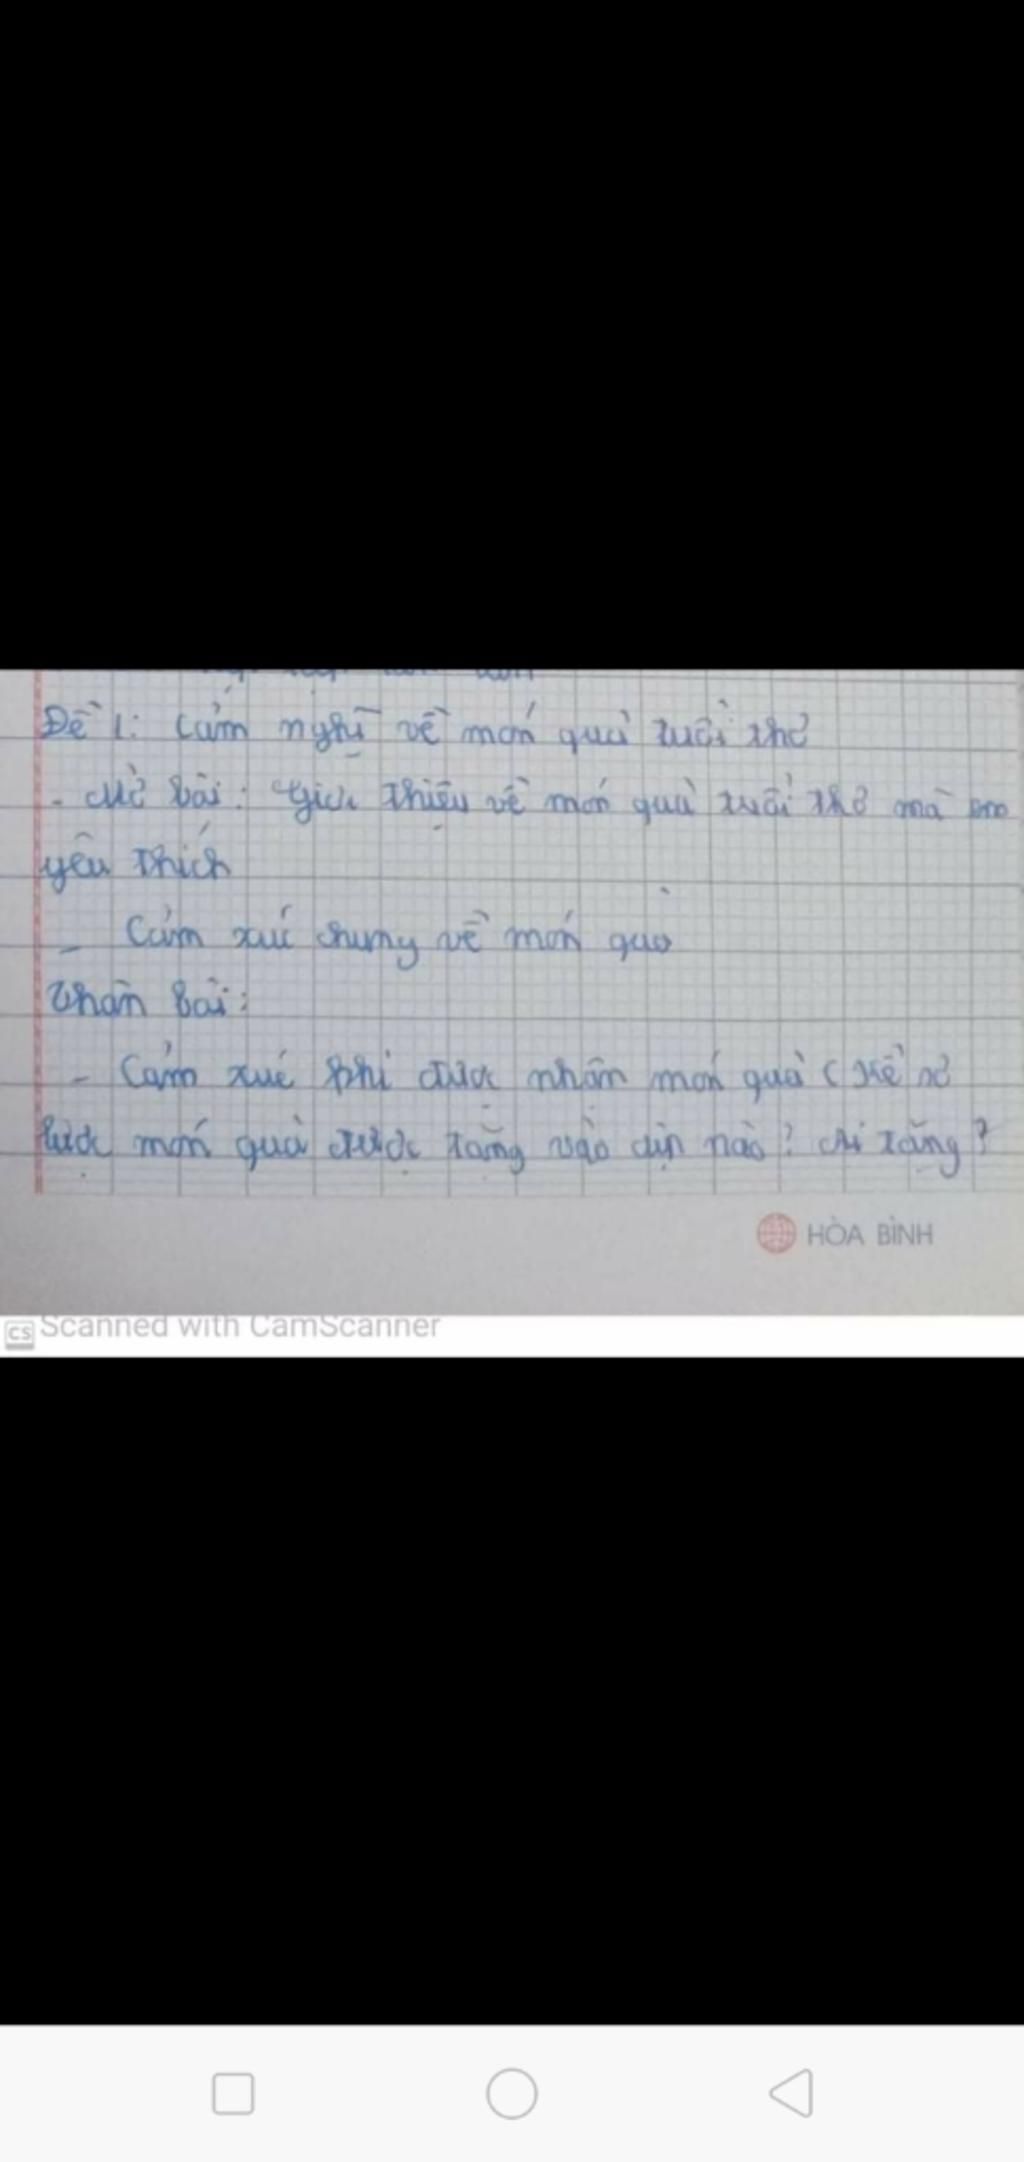 Đề 1: Cảm nghĩ về món quà tuổi thơ
- Mở bài: Giới thiệu về món quà tuổi thơ mà em
yêu thích
- Cảm xúc chung về món quà
Thân bài:
- Cảm xúc khi được nhận món quà ( kể sơ
lược món quà được tặng vào dịp nào? Ai tặng?
HÒA BÌNH
CS Scanned with CamScanner